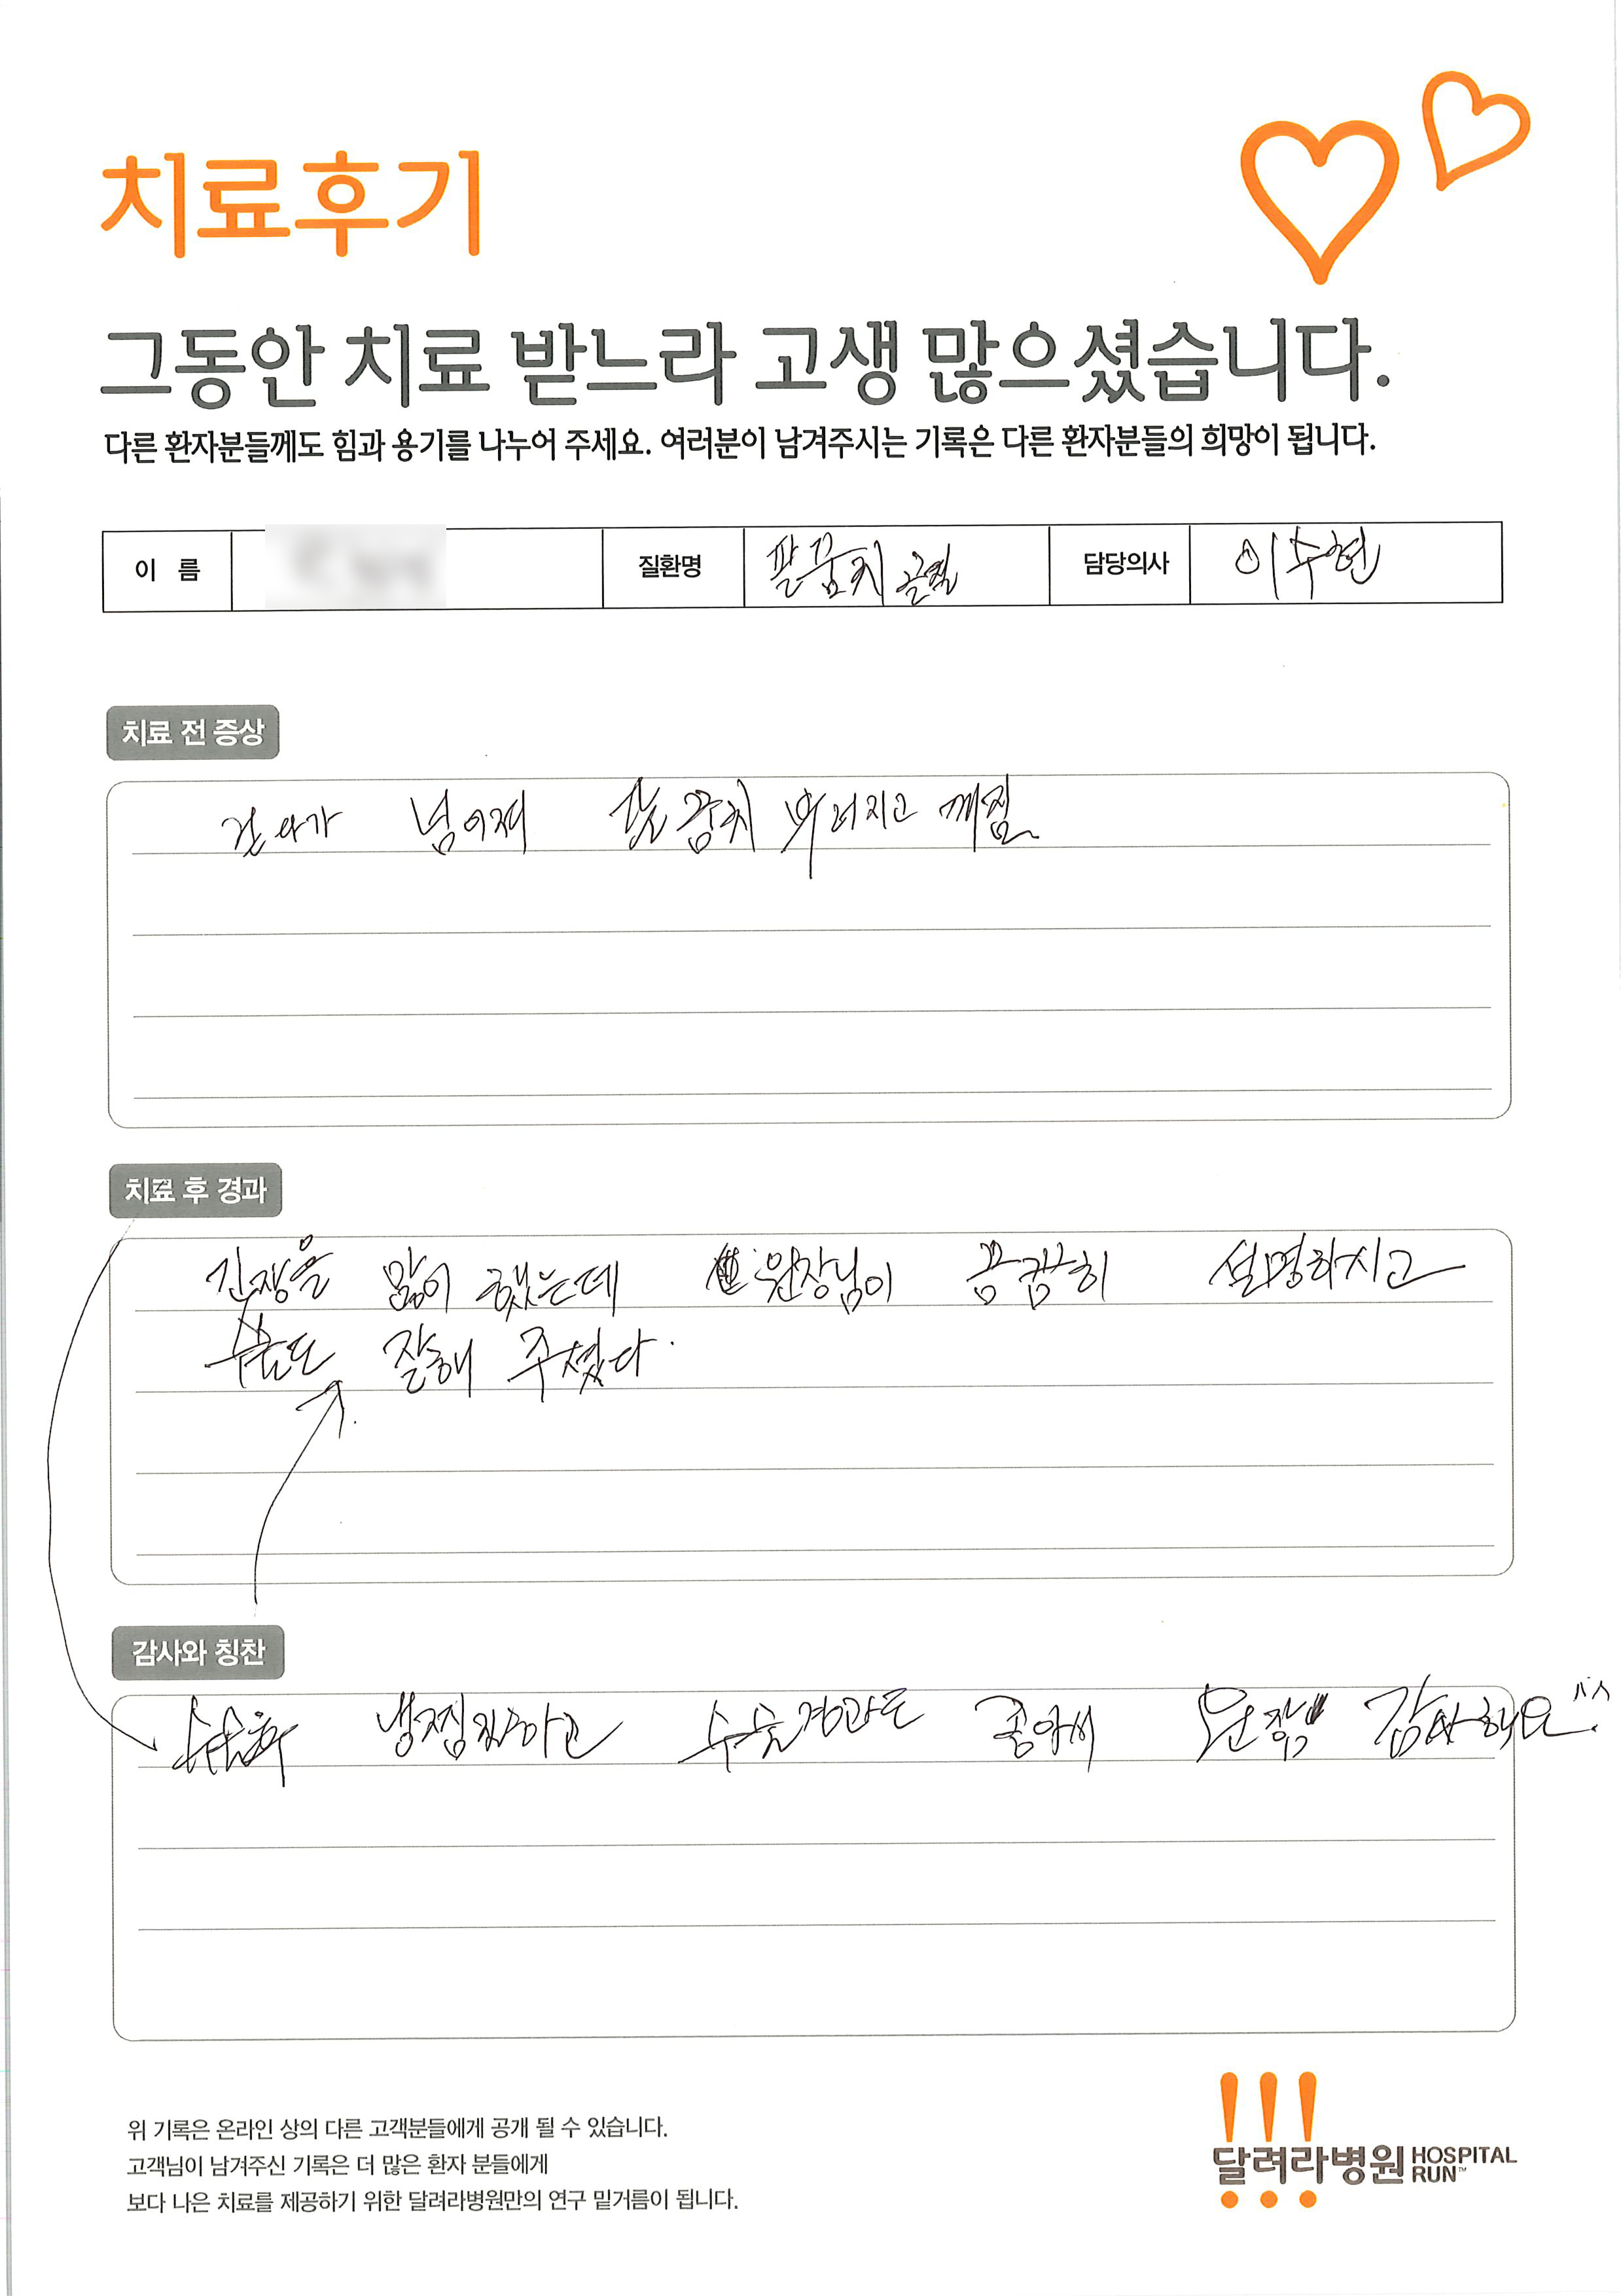 치료후기
그동안 치료 받느라 고생 많으셨습니다.
다른 환자분들께도 힘과 용기를 나누어 주세요. 여러분이 남겨주시는 기록은 다른 환자분들의 희망이 됩니다.
이 름 질환명 팔꿈치 골절 담당의사 이수현
치료 전 증상
걷다가 넘어져 팔꿈치 부러지고 깨짐
치료 후 경과
긴장을 많이 했는데 원장님이 꼼꼼히 설명하시고
수술도 잘해 주셨다.
감사와 칭찬
수술후 냉찜질하고 수술경과도 좋아서 감사해요^^
위 기록은 온라인 상의 다른 고객분들에게 공개 될 수 있습니다.
고객님이 남겨주신 기록은 더 많은 환자 분들에게
보다 나은 치료를 제공하기 위한 달려라병원만의 연구 밑거름이 됩니다.
달려라병원 HOSPITAL RUN™